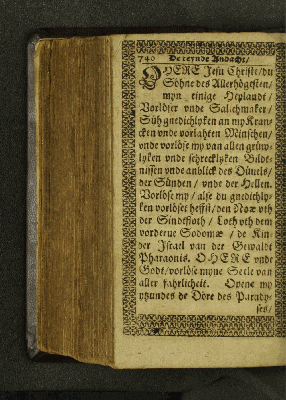 740 De teynde Andacht/
OHERE Jesu Christe/du
Söhne des Allerhögesten/
myn einige Heylandt/
Vorlöser vnde Salichmaker/
Süh gnedichlyken an my Kran-
cken vnde vorlahten Minschen/
vnde vorlöse my van allen grüw-
lyken vnde schrecklyken Bildt-
nissen vnde anblick des Düuels/
der Sünden / vnde der Hellen.
Vorlöse my / alse du gnedichly-
ken vorlöset heffst/den Noæ vth
der Sindtfloth / Loth vth dem
vorderue Sodomæ / de Kin-
der Israel van der Gewaldt
Pharaonis. O HERE vnde
Godt/vorlöse myne Seele van
aller fahrlicheit. Opene my
ytzundes de Döre des Paradys-
ses/